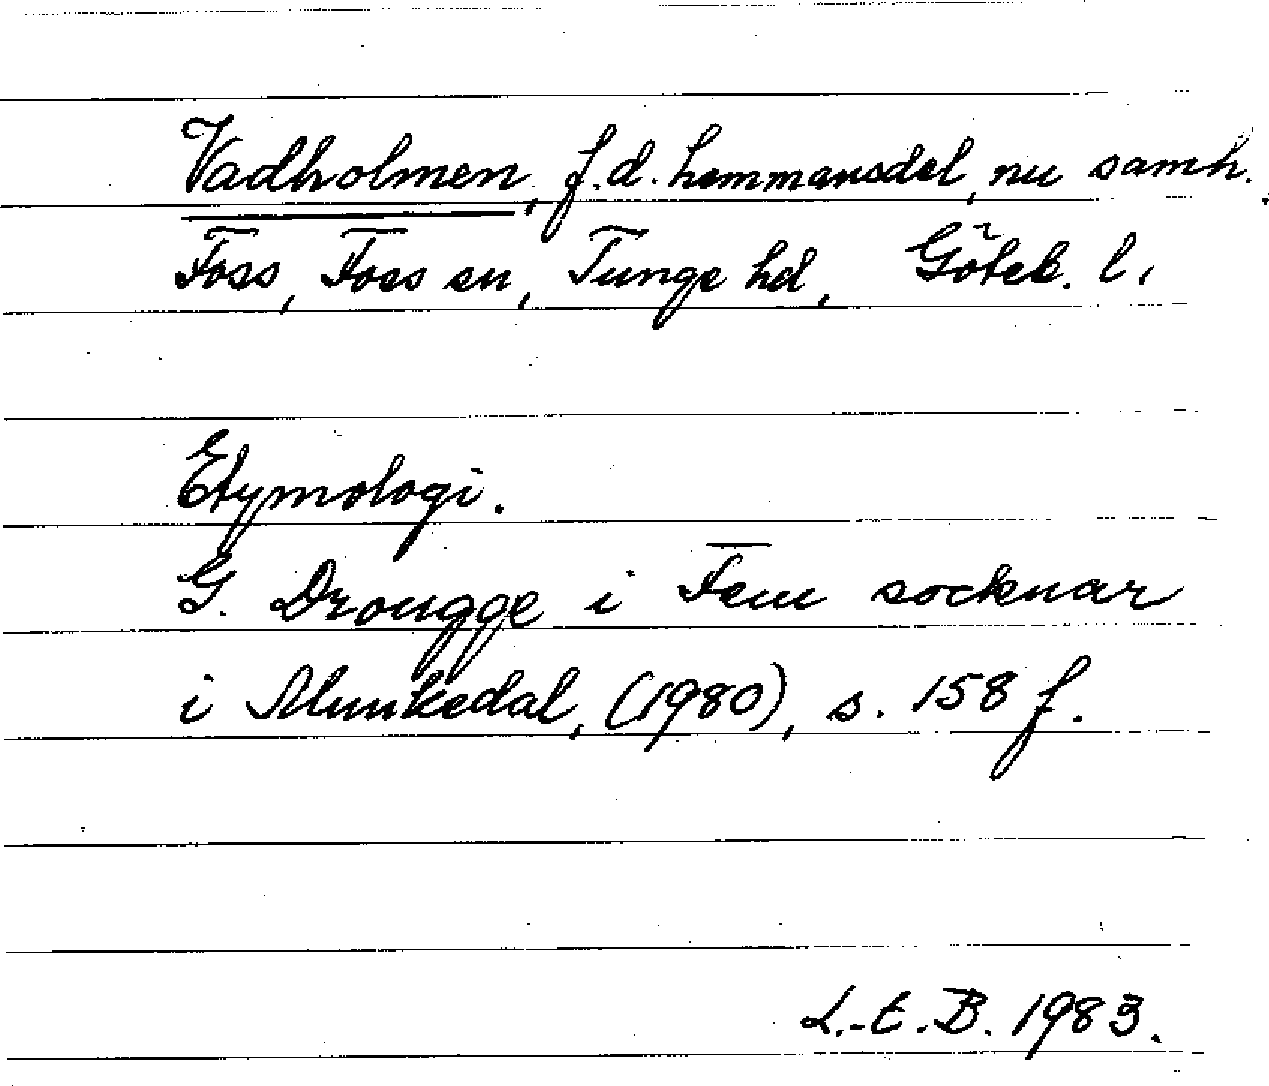 Vadholmen, f.d. hemmansdel, nu samh.
Foss, Foss sn, Tunge hd, Göteb. l.
Etymologi.
G. Drougge i Fem socknar
i Munkedal, (1980), s. 158 f.
L.-E. B. 1983.